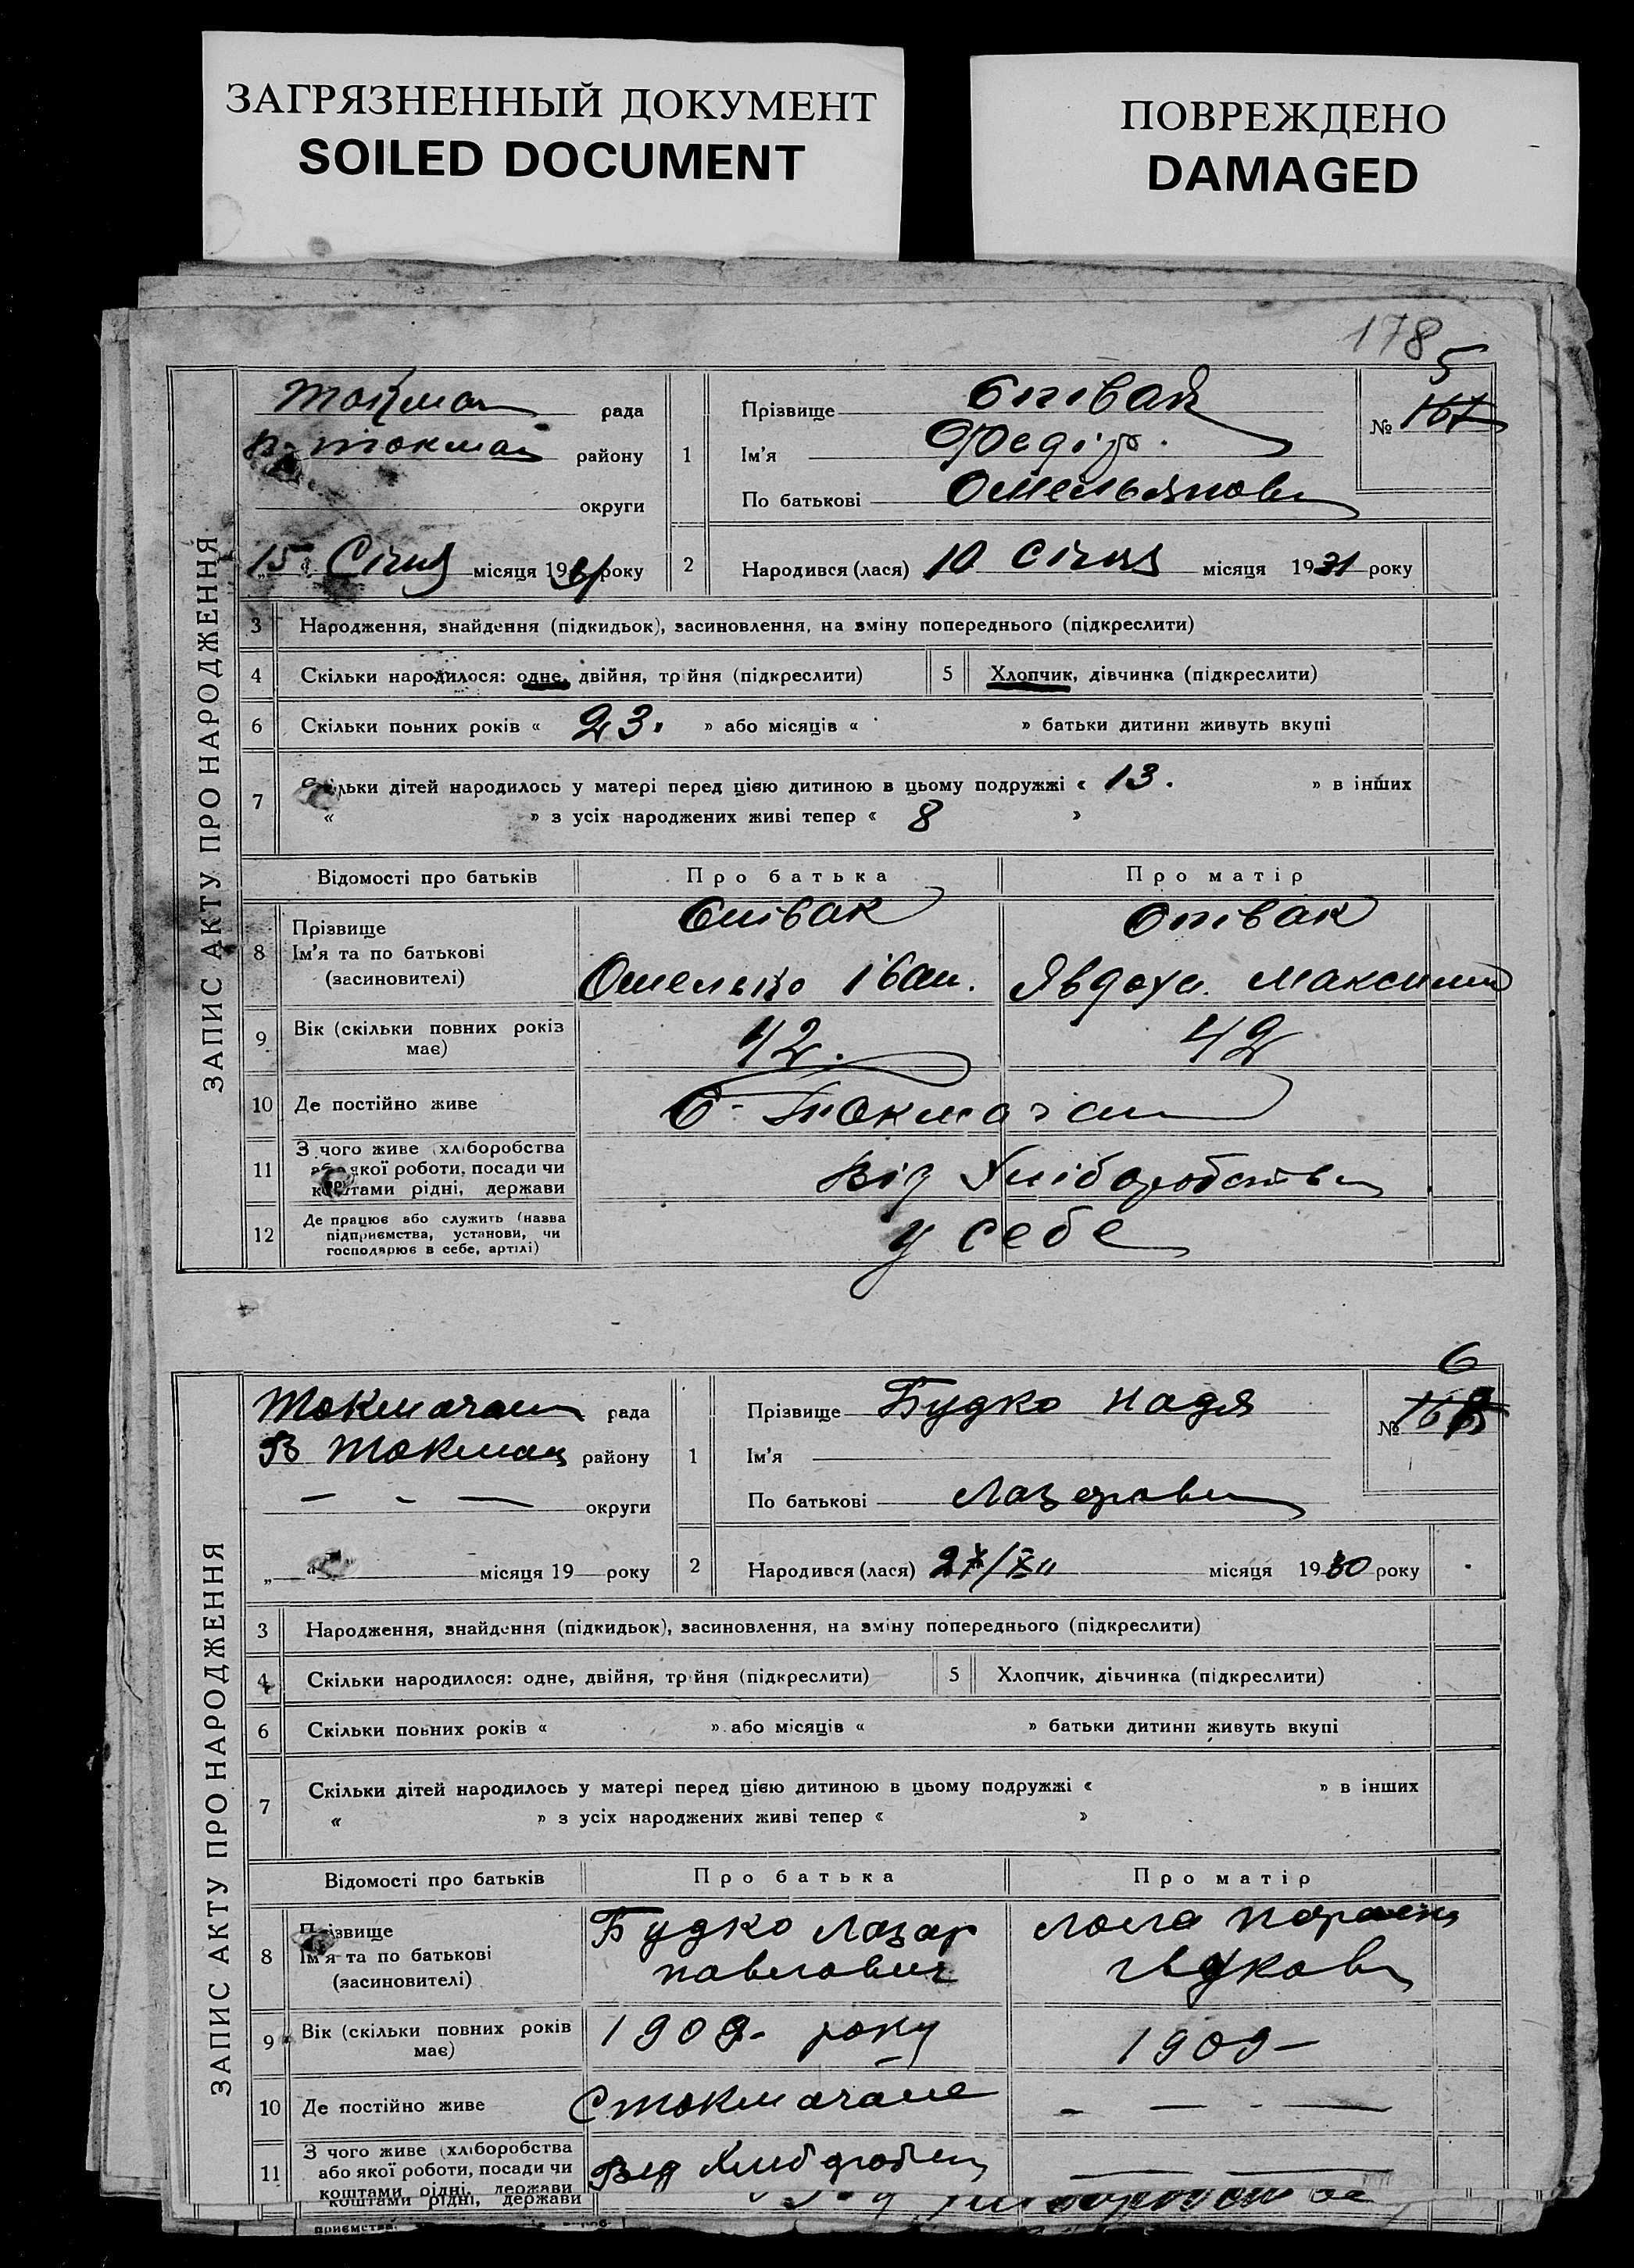 ЗАГРЯЗНЕННЫЙ ДОКУМЕНТ
SOILED DOCUMENT
ПОВРЕЖДЕНО
DAMAGED
178
ЗАПИС АКТУ ПРО НАРОДЖЕННЯ
рада
району
округи
15 Січня місяця 1931 року
1 Прізвище Співак
Ім'я Федір
По батькові Омельянов
№ 167 5
2 Народився (лася) 10 Січня місяця 1931 року
3 Народження, знайдення (підкидьок), засиновлення, на зміну попереднього (підкреслити)
4 Скільки народилося: одне, двійня, трійня (підкреслити) 5 Хлопчик, дівчинка (підкреслити)
6 Скільки повних років « 23. » або місяців « » батьки дитини живуть вкупі
7 Скільки дітей народилось у матері перед цією дитиною в цьому подружжі « 13. » в інших
« » з усіх народжених живі тепер « 8 »
Відомості про батьків Про батька Про матір
8 Прізвище Співак Співак
Ім'я та по батькові
(засиновителі) Омелько Іван. Явдоха Максимів
9 Вік (скільки повних років
має) 42. 42
10 Де постійно живе С. Токмачан
11 З чого живе (хліборобства
або якої роботи, посади чи
коштами рідні, держави Від Хліборобства
12 Де працює або служить (назва
підприємства, установи, чи
господарює в себе, артілі) у себе
ЗАПИС АКТУ ПРО НАРОДЖЕННЯ
Токмачан рада
В Токмац району
— - — округи
„ “ місяця 19 року
1 Прізвище Будко Надя
Ім'я
По батькові Лазаровн
№ 168 6
2 Народився (лася) 27/XII місяця 1930 року
3 Народження, знайдення (підкидьок), засиновлення, на зміну попереднього (підкреслити)
4 Скільки народилося: одне, двійня, трійня (підкреслити) 5 Хлопчик, дівчинка (підкреслити)
6 Скільки повних років « » або місяців « » батьки дитини живуть вкупі
7 Скільки дітей народилось у матері перед цією дитиною в цьому подружжі « » в інших
« » з усіх народжених живі тепер « »
Відомості про батьків Про батька Про матір
8 Прізвище Будко Лазар
Ім'я та по батькові Павлович
(засиновителі)
9 Вік (скільки повних років
має) 1909- року 1909-
10 Де постійно живе С Токмачане - — - —
11 З чого живе (хліборобства
або якої роботи, посади чи
коштами рідні, держави — —
коштами рідні, держави